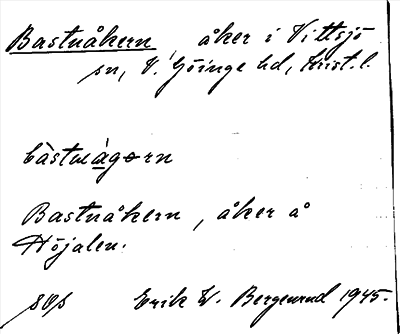 Bastnåkern, åker i Vittsjö
sn, V. Göinge hd, Krist. l.
Bastnåkern, åker å
Höjalen.
Erik W. Bergenrud 1945.